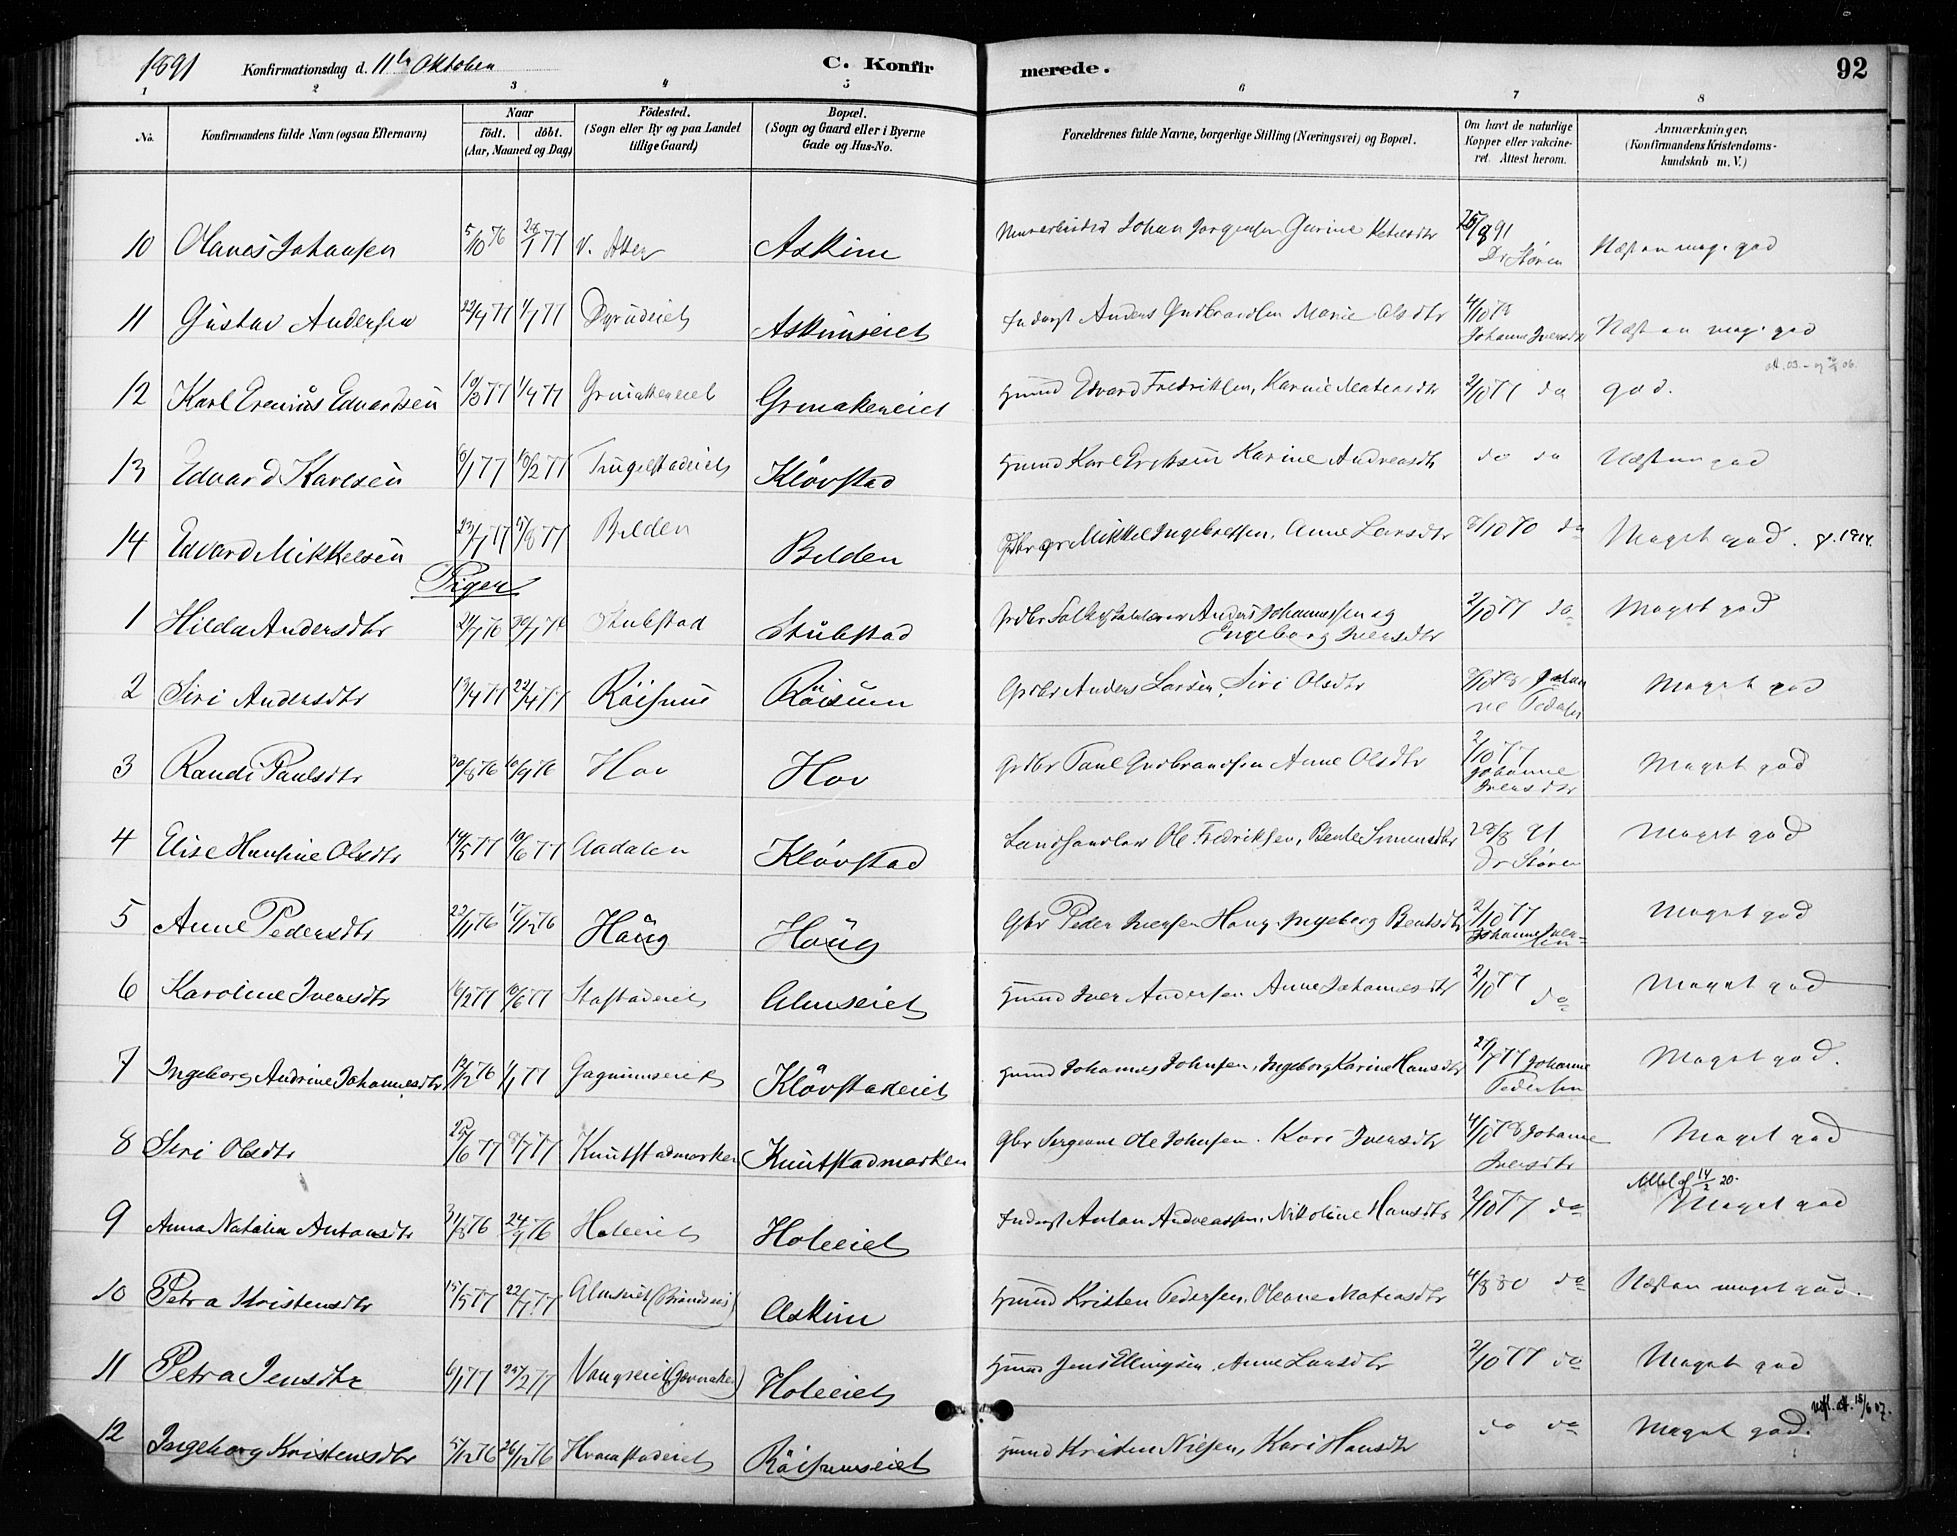 1891 Konfirmationsdag d. 11te Oktober C. Konfirmerede. 92
1 2 3 4 5 6 7 8
No. Konfirmandens fulde Navn (ogsaa Efternavn) Naar født. døbt. (Aar, Maaned og Dag) Födested. (Sogn eller By og paa Landet tillige Gaard) Bopæl. (Sogn og Gaard eller i Byerne Gade og Hus-No. Forældrenes fulde Navne, borgerlige Stilling (Næringsvei) og Bopæl. Om havt de naturlige Kopper eller vakcineret. Attest herom. Anmærkninger. (Konfirmandens Kristendomskundskab m. V.)
10 Olaves Johansen 5/10 76 28/1 77 V. Aker Askim Johan Jørgensen 25/8 91 Dr Støren Næsten meg. god
11 Gustav Andersen 1/7 77 Dyrudeiet Askimseiet Inderst Anders Gudbrandsen Marie Olsdtr 4/10 78 Johanne Iversdtr Næsten meg. god
12 Karl Erenius Edvardsen 10/3 77 1/4 77 Grinakereiet Grinakereiet Husmd Edvard Fredriksen, Karine Mateasdtr 2/10 77 do god.
13 Edvard Karlsen 6/1 77 18/2 77 Trugelstadeiet Klövstad Husmd Karl Eriksen Karine Andreasdtr do do Næsten god
14 Edvard Mikkelsen 23/7 77 5/8 77 Bilden Bilden Mikkel Ingebretsen, Anne Larsdtr do Meget god.
Piger
1 Hilda Andersdtr 30/7 76 Stubstad Stubstad Anders Johannessen og Engeborg Iversdtr 2/10 77 do Meget god
2 Siri Andersdtr 13/4 77 22/4 77 Röisum Röisum Grdbr Anders Larsen, Siri Olsdtr Johanne Pedersen Meget god
3 Randi Paulsdtr 30/8 76 10/9 76 Hov Hov Grdbr Paul Gudbrandsen Anne Olsdtr 2/10 77 Johanne Iversdtr Meget god
4 Elise Hansine Olsdtr 14/5 77 10/6 77 Aadalen Klövstad Landhandler Ole Fredriksen, Berte Simensdtr 28/8 91 Dr Støren Meget god
5 Anne Pedersdtr 22/11 76 17/12 76 Haug Haug Gbr Peder Iversen Haug, Ingeborg Bentsdtr 2/10 77 Johanne Iversen Meget god
6 Karoline Iversdtr 16/2 77 10/6 77 Stafstadeiet Almseiet Husmd Iver Andersen Anne Johannesdtr 2/10 77 do Meget god
7 Ingeborg Andrine Johannesdtr 13/12 76 1/1 77 Gagnumseiet Klövstadeiet Husmd Johannes Johnsen, Ingeborg Karine Hansdtr Johanne Pedersen Meget god.
8 Siri Olsdtr 25/6 77 8/7 77 Knutstadmarken Knutstadmarken Gbr Sergeant Ole Johnsen. Kari Iversdtr 4/10 78 Johanne Iversdtr Meget god
9 Anna Natalia Antonsdtr 31/8 76 24/9 76 Holeeiet Holeeiet Inderst Anton Andreassen, Nikoline Hansdtr 2/10 77 do 14/2 20. Meget god
10 Petra Kristensdtr 15/5 77 22/7 77 Almseiet Askim Husmd Kristen Pedersen, Oleane Mateasdtr 4/8 80 do Næsten meget god.
11 Petra Jensdtr 6/1 77 25/2 77 Vangseiet Holeeiet Husmd Jens Ellingsen, Anne Larsdtr 2/10 77 do Meget god
12 Ingeborg Kristensdtr 5/12 76 26/12 76 Hvamstadeiet Röisumseiet Husmd Kristen Nilsen, Kari Hansdtr do do Meget god. att. 15/6 07.